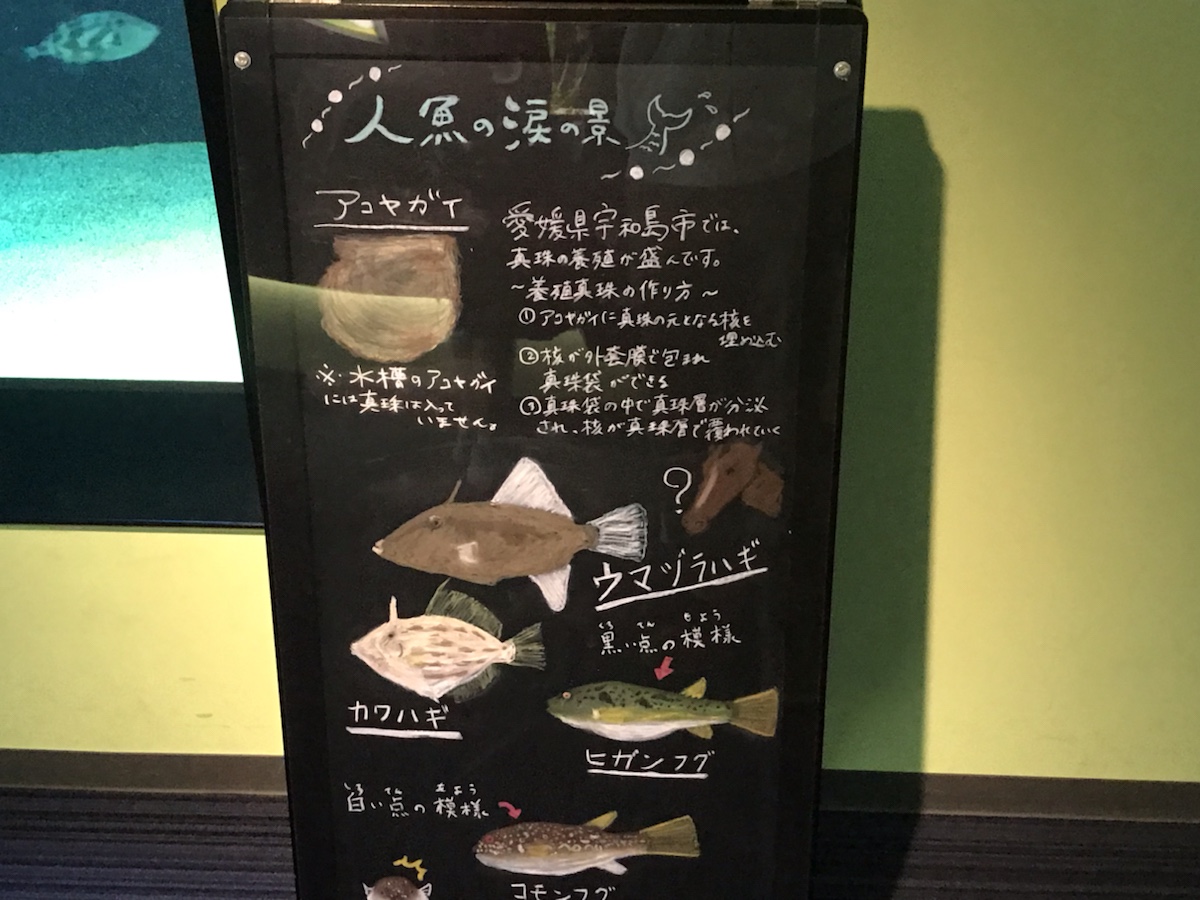 人魚の涙の景
アコヤガイ
※水槽のアコヤガイ
には真珠は入って
いません。
愛媛県宇和島市では、
真珠の養殖が盛んです。
~養殖真珠の作り方~
①アコヤガイに真珠の元となる核を
埋め込む
②核が外套膜で包まれ
真珠袋ができる
③真珠袋の中で真珠層が分泌
され、核が真珠層で覆われていく
?
ウマヅラハギ
カワハギ
くろ てん もよう
黒い点の模様
ヒガンフグ
しろ てん もよう
白い点の模様
コモンフグ